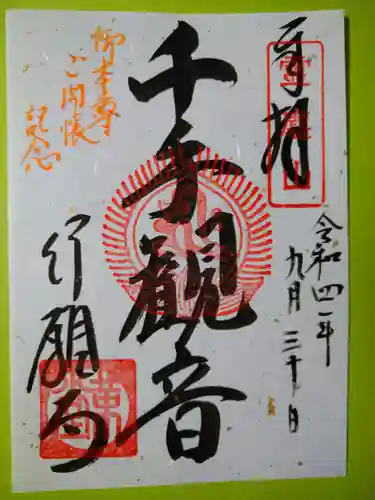 奉拝
令和四年
九月三十日
千手観音
行願寺
御本尊
ご開帳
記念